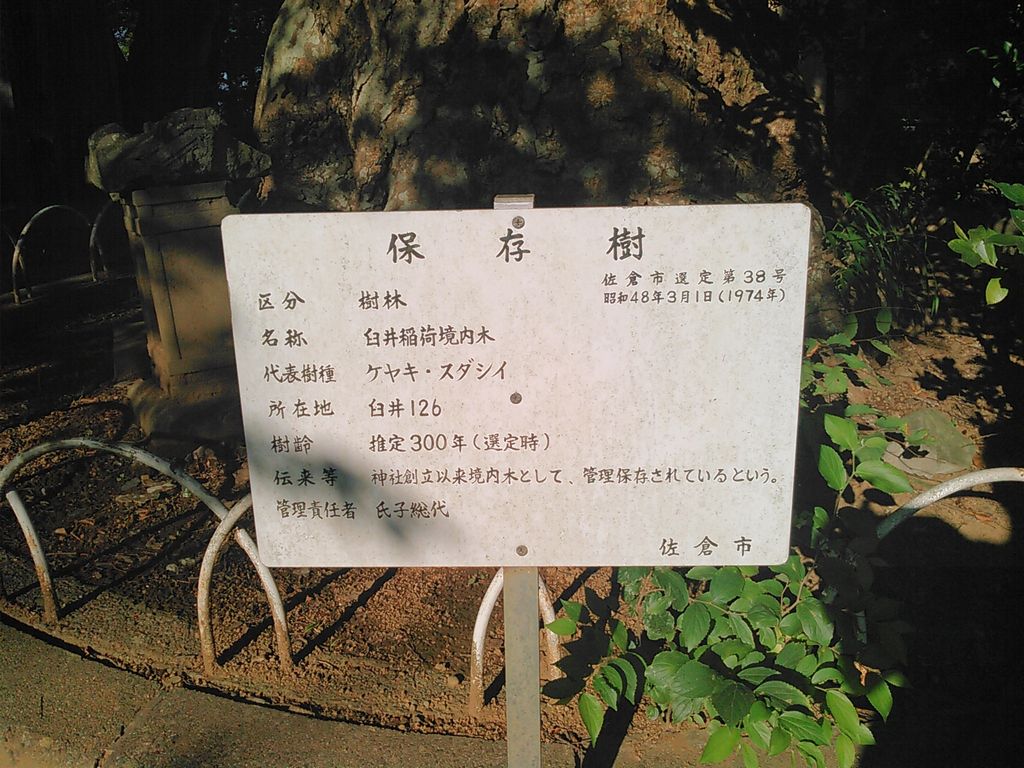 保存樹
佐倉市選定第38号
昭和48年3月1日(1974年)
区分 樹林
名称 臼井稲荷境内木
代表樹種 ケヤキ・スダシイ
所在地 臼井126
樹齢 推定300年(選定時)
伝来等 神社創立以来境内木として、管理保存されているという。
管理責任者 氏子総代
佐倉市